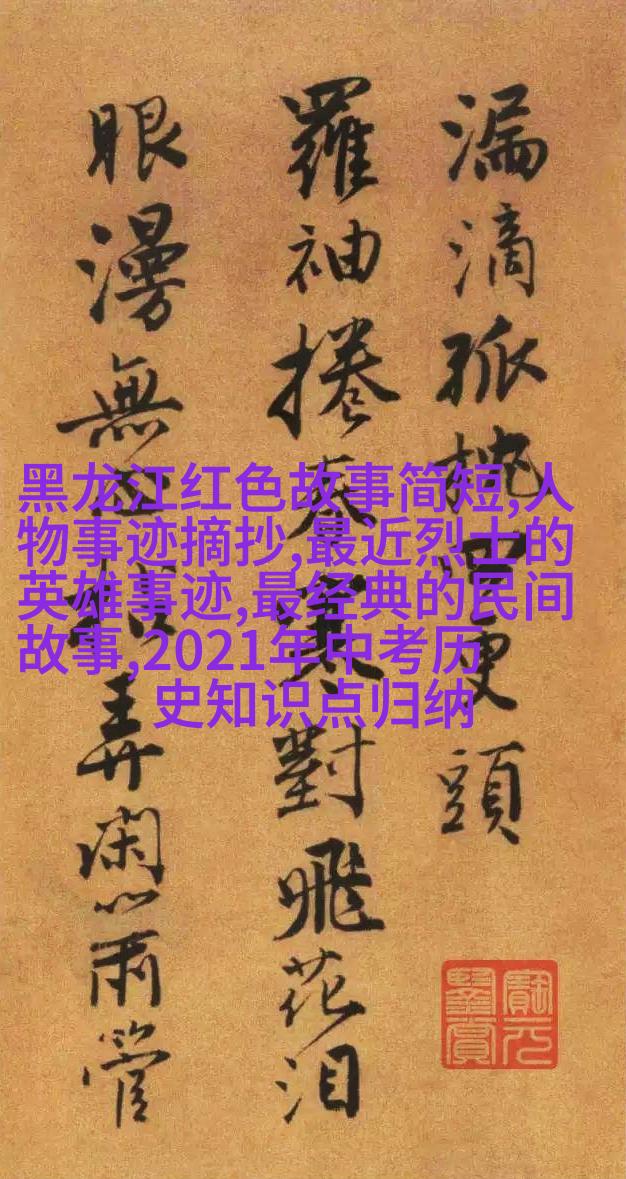 漏滴孤更頭
羅袖捲春寒對飛花泪
眼漫無弄闲心兩管
黑龙江红色故事简短,人
物事迹摘抄,最近烈士的
英雄事迹,最经典的民间
故事,2021年中考历
史知识点归纳
元
鑒賞